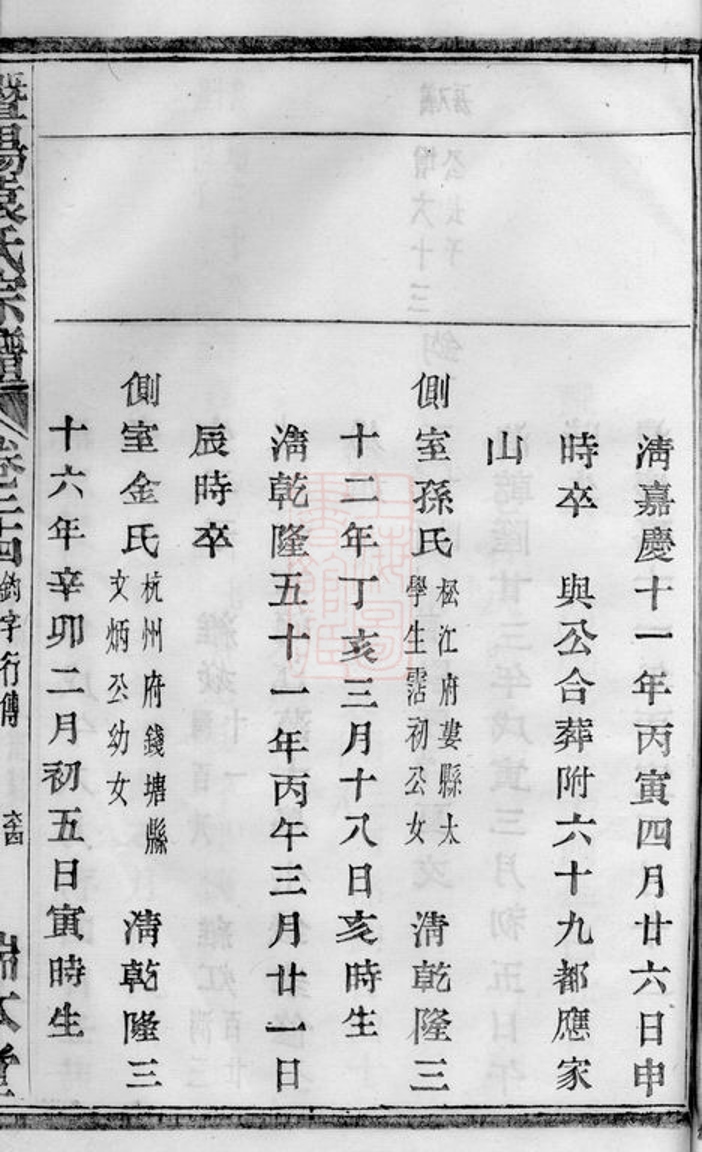 淸嘉慶十一年丙寅四月廿六日申
時卒　與公合葬附六十九都應家
山
側室孫氏　松江府婁縣太
學生霑初公女　淸乾隆三
十二年丁亥三月十八日亥時生
淸乾隆五十一年丙午三月廿一日
辰時卒
側室金氏　杭州府錢塘縣
文炳公幼女　淸乾隆三
十六年辛卯二月初五日寅時生
暨陽袁氏宗譜　卷三十四　鈞字行傳